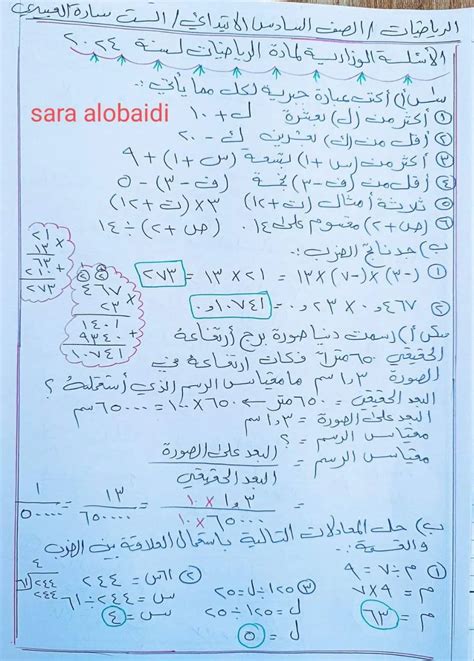 الرياضيات / الصف السادس الابتدائي / الست سارة العبيدي
الأسئلة الوزارية لمادة الرياضيات لسنة ٢٠٢٤
sara alobaidi
س١/ أ) أكتب عبارة جبرية لكل مما يأتي :.
① أكثر من (ل) بعشرة ل + ١٠
② أقل من (ك) بعشرين ك - ٢٠
③ أكثر من (س + ١) بتسعة (س + ١) + ٩
④ أقل من (ف - ٣) بخمسة (ف - ٣) - ٥
⑤ ثلاثة أمثال (ت + ١٢) ٣ × (ت + ١٢)
⑥ (ص + ٢) مقسوم على ١٤ (ص + ٢) ÷ ١٤
ب) جد ناتج الضرب :.
① (-٣) × (-٧) × ١٣ = ٢١ × ١٣ = ٢٧٣
٢١
١٣ ×
٦٣
٢١٠ +
٢٧٣
② ٤٦٧و٠ × ٢٣و٠ = ١٠٧٤١و٠
٤٦٧
٢٣ ×
١٤٠١
٩٣٤٠ +
١٠٧٤١
س٢/ أ) رسمت دنيا صورة برج أرتفاعه
الحقيقي ٦٥٠ متراً فكان ارتفاعه في
الصورة ٣و١ سم ما مقياس الرسم الذي أستعملته ؟
البعد الحقيقي = ٦٥٠ متر ← ٦٥٠ × ١٠٠ = ٦٥٠٠٠ سم
البعد على الصورة = ٣و١ سم
مقياس الرسم = ؟
مقياس الرسم = البعد على الصورة
البعد الحقيقي
= ٣و١ × ١٠ = ١٣ = ١
٦٥٠٠٠ × ١٠ ٦٥٠٠٠٠ ٥٠٠٠٠
ب) حل المعادلات التالية باستعمال العلاقة بين الضرب
والقسمة :.
① م ÷ ٧ = ٩
م = ٩ × ٧
م = ٦٣
② ٦١س = ٢٤٤
س = ٢٤٤ ÷ ٦١
س = ٤
٤
٦١ ٢٤٤
٢٤٤
③ ١٢٥ ÷ ل = ٢٥
ل = ١٢٥ ÷ ٢٥
ل = ٥